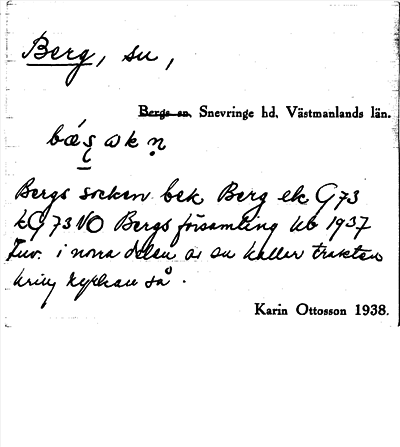 Berg, sn,
Bergs sn, Snevringe hd, Västmanlands län.
Bergs socken bek Berg ek G73
kG73NO Bergs församling kb 1937
Inv. i norra delen av sn kallar trakten
kring kyrkan så.
Karin Ottosson 1938.